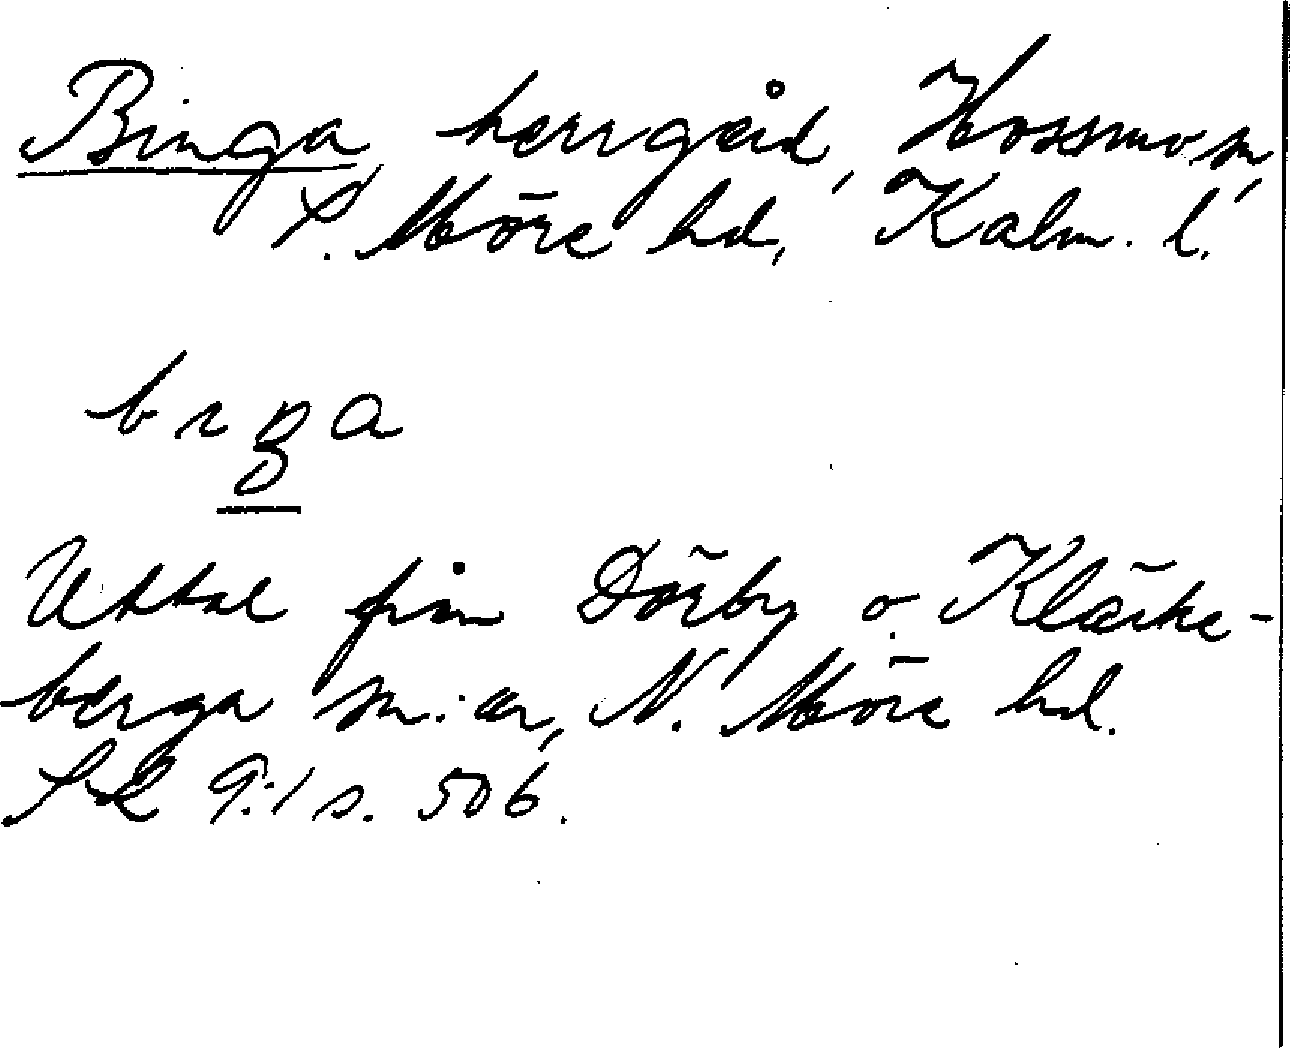 Binga herrgård, Hossmo sn,
S. Möre hd, Kalm. l.
Uttal från Dörby o. Kläcke-
berga sn:ar, N. Möre hd.
9:1 s. 506.